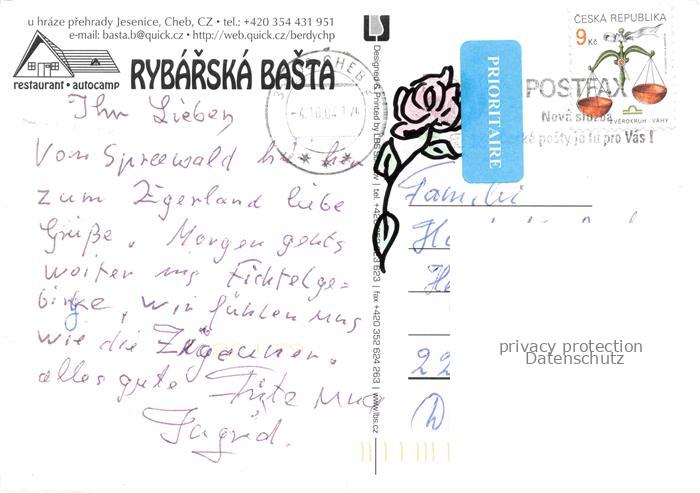 u hráze přehrady Jesenice, Cheb, CZ • tel.: +420 354 431 951
e-mail: basta.b@quick.cz • http://web.quick.cz/berdychp
restaurant • autocamp
RYBÁŘSKÁ BAŠTA
Ihr Lieben
Vom Spreewald bis hin
zum Egerland liebe
Grüße. Morgen gehts
weiter ins Fichtelge=
birge, wir fühlen uns
wie die Zigeuner.
alles gute Fritz und
Ingrid.
Designed & Printed by LBS
fax +420 352 624 263 | www.lbs.cz
CHEB
PRIORITAIRE
ČESKÁ REPUBLIKA
9 Kč
ZVĚROKRUH - VÁHY
POSTFAX
Nová služba
České pošty je tu pro Vás !
Familie
22
D
privacy protection
Datenschutz